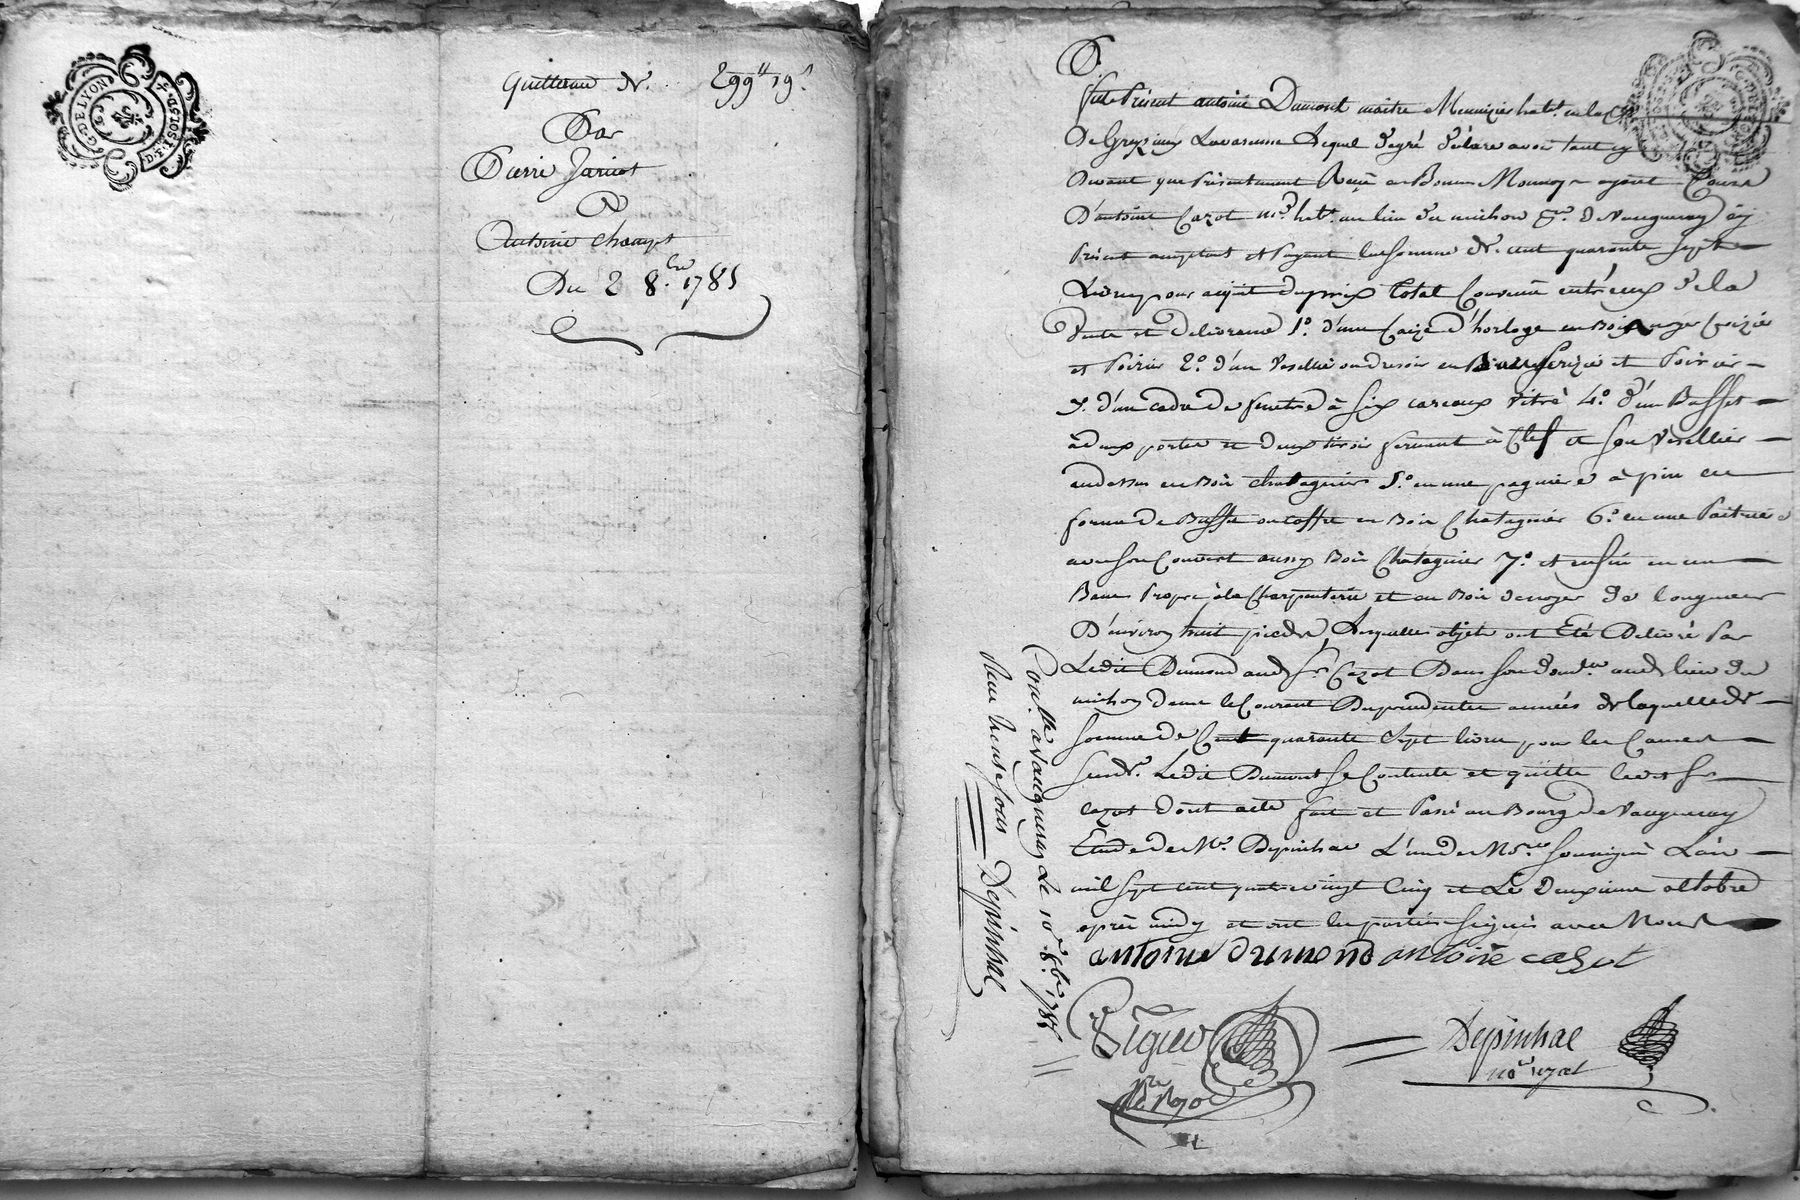 G. DE LYON
Quittance de 299ᵗᵗ 19ˢ
Par
Pierre Jaricot
A
Antoine
Du 2 8.bre 1785
fut Présent antoine Dumont maitre Menuizier habt. en la
De Grezieu Lavarenne Lequel degré déclare avoir tant cy
Devant que Présentement Reçu en Bonne Monnoye ayant Cours
D'antoine Cazot md habt. au lieu du michon psse. de Vaugneray icy
Présent acceptant et Payant la somme de cent quarante sept
Livres pour acquit du prix total Convenu entr'eux de la
Vente et Delivrance 1º. d'une Caize d'horloge en Bois noyer Cerizié
et Poirier 2º. d'un Vesellié ou dresoir en Bois Cerizié et Poirier
3. d'un cadre de fenetre à six careaux vitré 4º. d'un Buffet
à deux portes et deux tiroir fermant à Clef et son Vesellier
au dessus en Bois chatagnier 5º. en une pagniere à pin en
forme de Buffet ou coffre en Bois Chatagnier 6º. en une Paitriere
avec son Couvert aussy Bois Chatagnier 7º. et enfin en un
Banc Propre à la Charpenterie et en Bois de noyer de longueur
D'environ huit pieds, Lesquelles objets ont Eté Delivré Par
Ledit Dumond audt Sr. Cazot Dans son domle. audt lieu du
michon dans le Courant Des precedentes années de laquelle de
somme de Cent quarante Sept livres pour les Causes
susd. Ledit Dumont se Contente et quitte ledit Sr
cazot dont acte fait et Passé au Bourg de Vaugneray
Etude de Me. Depinhac L'un des Nores soussigné L'an
mil sept cent quatre vingt Cinq et Le Deuxieme octobre
après midy et ont les parties signés avec Nous
antoine dumond antoine cazot
Depinhac
nore royal
Conllé a Vaugneray Le 10e. 8bre 1785
Reçu sous Depinhac